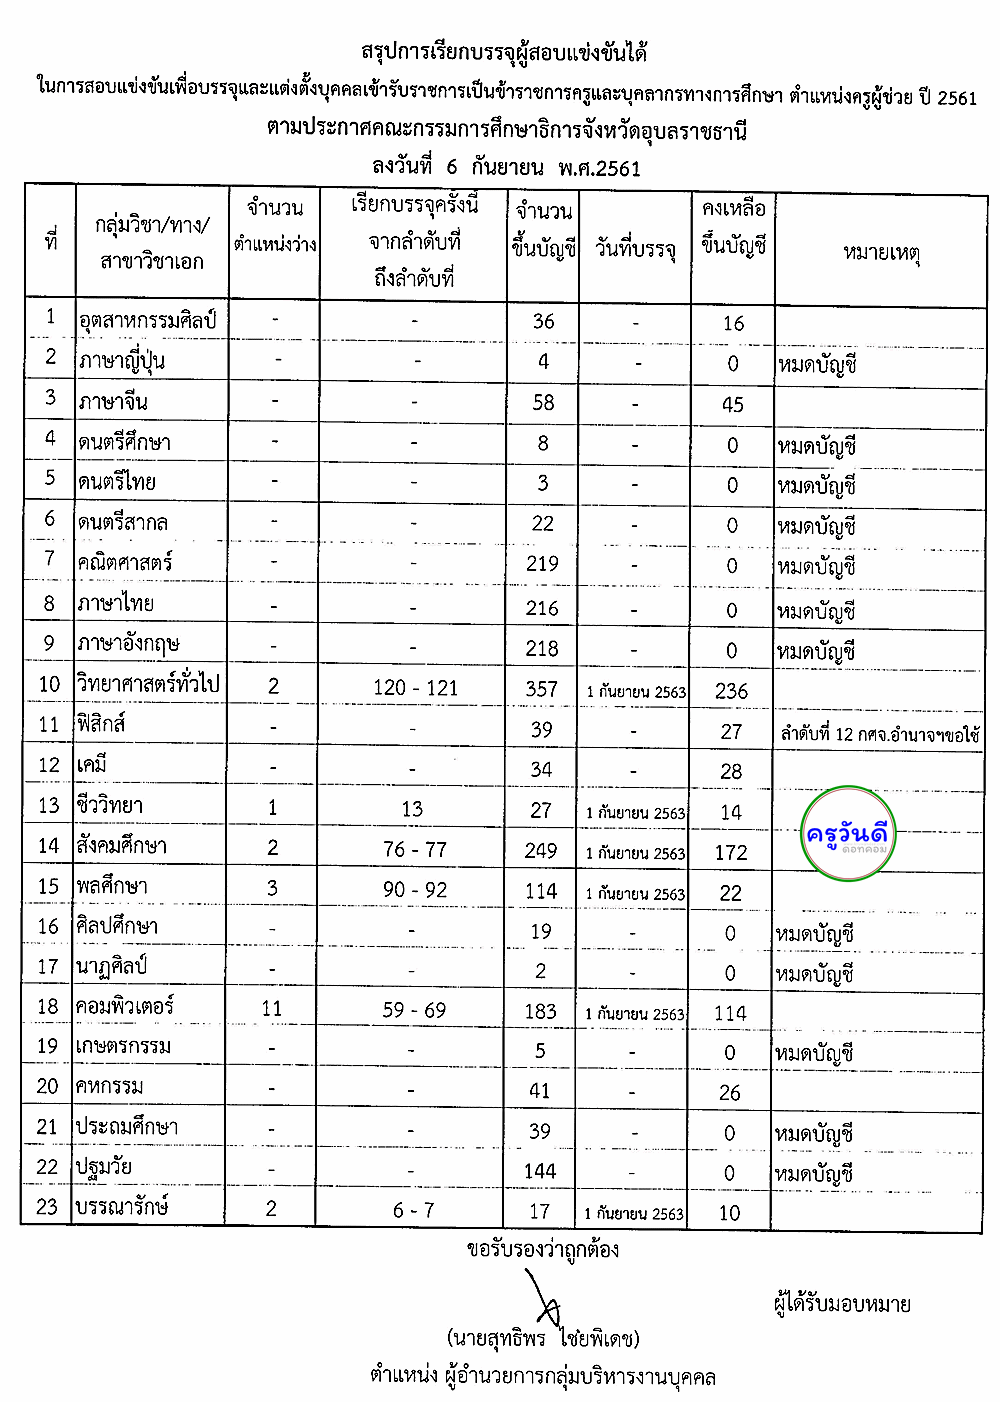 สรุปการเรียกบรรจุผู้สอบแข่งขันได้
ในการสอบแข่งขันเพื่อบรรจุและแต่งตั้งบุคคลเข้ารับราชการเป็นข้าราชการครูและบุคลากรทางการศึกษา ตำแหน่งครูผู้ช่วย ปี 2561
ตามประกาศคณะกรรมการศึกษาธิการจังหวัดอุบลราชธานี
ลงวันที่ 6 กันยายน พ.ศ.2561
ที่ กลุ่มวิชา/ทาง/สาขาวิชาเอก จำนวนตำแหน่งว่าง เรียกบรรจุครั้งนี้จากลำดับที่ถึงลำดับที่ จำนวนขึ้นบัญชี วันที่บรรจุ คงเหลือขึ้นบัญชี หมายเหตุ
1 อุตสาหกรรมศิลป์ - - 36 - 16
2 ภาษาญี่ปุ่น - - 4 - 0 หมดบัญชี
3 ภาษาจีน - - 58 - 45
4 ดนตรีศึกษา - - 8 - 0 หมดบัญชี
5 ดนตรีไทย - - 3 - 0 หมดบัญชี
6 ดนตรีสากล - - 22 - 0 หมดบัญชี
7 คณิตศาสตร์ - - 219 - 0 หมดบัญชี
8 ภาษาไทย - - 216 - 0 หมดบัญชี
9 ภาษาอังกฤษ - - 218 - 0 หมดบัญชี
10 วิทยาศาสตร์ทั่วไป 2 120 - 121 357 1 กันยายน 2563 236
11 ฟิสิกส์ - - 39 - 27 ลำดับที่ 12 กศจ.อำนาจฯขอใช้
12 เคมี - - 34 - 28
13 ชีววิทยา 1 13 27 1 กันยายน 2563 14
14 สังคมศึกษา 2 76 - 77 249 1 กันยายน 2563 172
15 พลศึกษา 3 90 - 92 114 1 กันยายน 2563 22
16 ศิลปศึกษา - - 19 - 0 หมดบัญชี
17 นาฏศิลป์ - - 2 - 0 หมดบัญชี
18 คอมพิวเตอร์ 11 59 - 69 183 1 กันยายน 2563 114
19 เกษตรกรรม - - 5 - 0 หมดบัญชี
20 คหกรรม - - 41 - 26
21 ประถมศึกษา - - 39 - 0 หมดบัญชี
22 ปฐมวัย - - 144 - 0 หมดบัญชี
23 บรรณารักษ์ 2 6 - 7 17 1 กันยายน 2563 10
ครูวันดี
ดอทคอม
ขอรับรองว่าถูกต้อง
ผู้ได้รับมอบหมาย
(นายสุทธิพร ไชยพิเดช)
ตำแหน่ง ผู้อำนวยการกลุ่มบริหารงานบุคคล